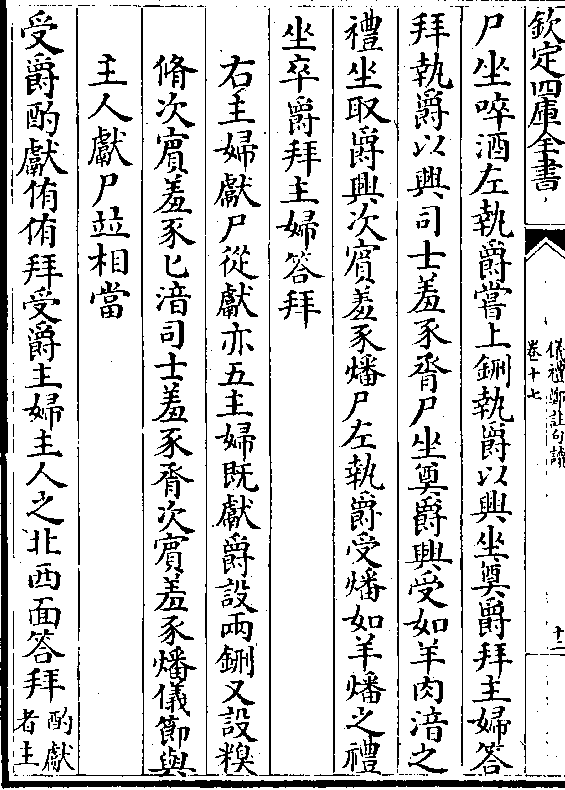 欽定四庫全書
儀禮鄭註句讀
卷十七
十二
尸坐啐酒左執爵嘗上鉶執爵以興坐奠爵拜主婦答
拜執爵以興司士羞豕脀尸坐奠爵興受如羊肉湇之
禮坐取爵興次賓羞豕燔尸左執爵受燔如羊燔之禮
坐卒爵拜主婦答拜
右主婦獻尸從獻亦五主婦既獻爵設兩鉶又設糗
脩次賓羞豕匕湇司士羞豕脀次賓羞豕燔儀節與
主人獻尸竝相當
受爵酌獻侑侑拜受爵主婦主人之北西面答拜
酌獻
者主